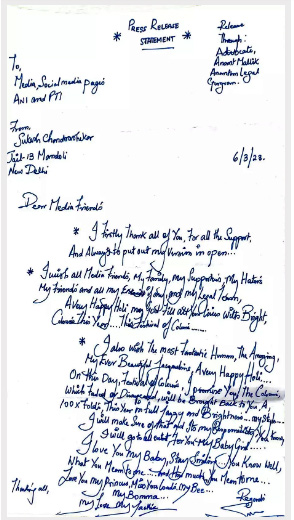 PRESS RELEASE
* STATEMENT *
Release
Through:
Advocate,
Anant Malik
Anantam Legal
Gurgaon.
To,
Media, Social media pages
ANI and PTI
From,
Sukash Chandrashekar
Jail-13 Mandoli
New Delhi
6/3/23.
Dear Media Friends
* I Firstly Thank all of You, For all the Support,
And Always to put out my Version in open...
* I wish all Media Friends, my Family, my Supporters, My Haters
My Friends and all my Enemies if any, and my Legal team,
A very Happy Holi may God Fill all Your Lives With Bright
Colours This Year... This Festival of Colours.....
* I also wish The most Fantastic Human, The Amazing,
My Ever Beautiful Jacqueline, A very Happy Holi...
On This Day, Festival of Colours, I promise You, The Colours,
Which faded or Disappeared, will be Brought Back to You. A
100 X Folds. This Year in Full and Brightness... my Style...
I will make Sure of That and Its my Responsibility You Know,
I will go to all out For You my Baby Girl.....
I Love You My Baby, Stay Smiling... You Know Well,
What You Mean to me... And How much You Mean to me...
Love You my Princess, Miss You Loads, My Bee...
My Bomma...
my Love My Jackie
Thanking all,
Regards